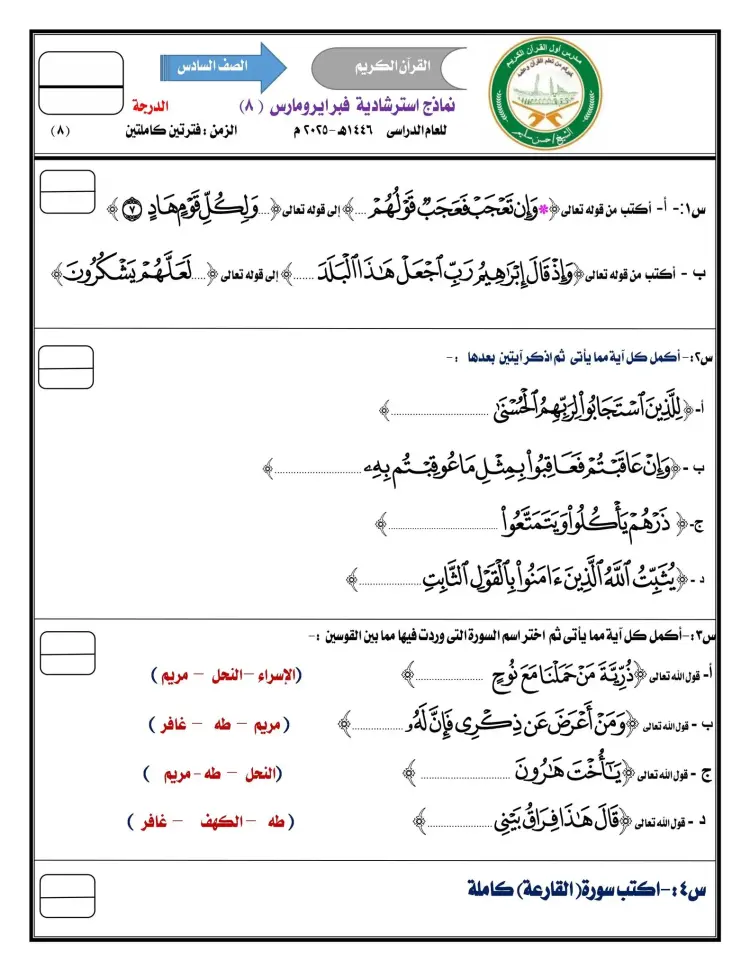 مدرس أول القرآن الكريم
خيركم من تعلم القرآن وعلمه
الشيخ/حسن سليم
القرآن الكريم
الصف السادس
نماذج استرشادية فبراير ومارس (٨)
الدرجة
للعام الدراسى ١٤٤٦هـ -٢٠٢٥ م
الزمن : فترتين كاملتين
(٨)
س١:- أ- أكتب من قوله تعالى ﴿* وَإِن تَعْجَبْ فَعَجَبٌ قَوْلُهُمْ ....﴾ إلى قوله تعالى ﴿.... وَلِكُلِّ قَوْمٍ هَادٍ ٧﴾
ب - أكتب من قوله تعالى ﴿وَإِذْ قَالَ إِبْرَاهِيمُ رَبِّ ٱجْعَلْ هَـٰذَا ٱلْبَلَدَ ......﴾ إلى قوله تعالى ﴿.....لَعَلَّهُمْ يَشْكُرُونَ﴾
س٢:- أكمل كل آية مما يأتى ثم اذكر آيتين بعدها :-
أ-﴿لِلَّذِينَ ٱسْتَجَابُوا۟ لِرَبِّهِمُ ٱلْحُسْنَىٰ ..............................﴾
ب -﴿وَإِنْ عَاقَبْتُمْ فَعَاقِبُوا۟ بِمِثْلِ مَا عُوقِبْتُم بِهِۦ ..............................﴾
ج-﴿ ذَرْهُمْ يَأْكُلُوا۟ وَيَتَمَتَّعُوا۟ ..............................﴾
د -﴿يُثَبِّتُ ٱللَّهُ ٱلَّذِينَ ءَامَنُوا۟ بِٱلْقَوْلِ ٱلثَّابِتِ....................﴾
س٣:-أكمل كل آية مما يأتى ثم اختر اسم السورة التى وردت فيها مما بين القوسين :-
أ- قول الله تعالى ﴿ذُرِّيَّةَ مَنْ حَمَلْنَا مَعَ نُوحٍ ....................﴾ (الإسراء -النحل - مريم )
ب - قول الله تعالى ﴿وَمَنْ أَعْرَضَ عَن ذِكْرِى فَإِنَّ لَهُۥ ................﴾ (مريم - طه - غافر )
ج - قول الله تعالى ﴿يَـٰٓأُخْتَ هَـٰرُونَ ..........................﴾ (النحل - طه - مريم )
د - قول الله تعالى ﴿قَالَ هَـٰذَا فِرَاقُ بَيْنِى ....................﴾ (طه - الكهف - غافر )
س٤:-اكتب سورة( القارعة) كاملة